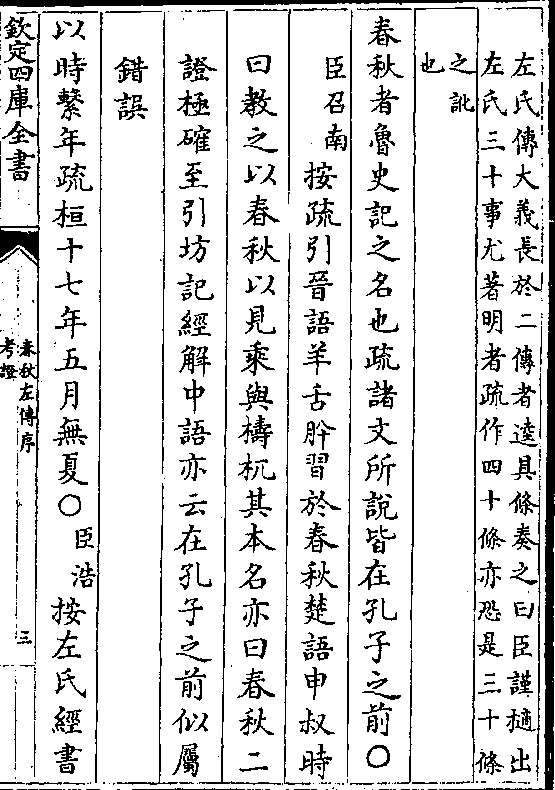 左氏傳大義長於二傳者逵具條奏之曰臣謹擿出
左氏三十事尤著明者疏作四十條亦恐是三十條
之訛
也
春秋者魯史記之名也疏諸文所說皆在孔子之前〇
臣召南按疏引晉語羊舌肸習於春秋楚語申叔時
曰教之以春秋以見乘與檮杌其本名亦曰春秋二
證極確至引坊記經解中語亦云在孔子之前似屬
錯誤
以時繫年疏桓十七年五月無夏〇臣浩按左氏經書
欽定四庫全書
春秋左傳序
考證
三